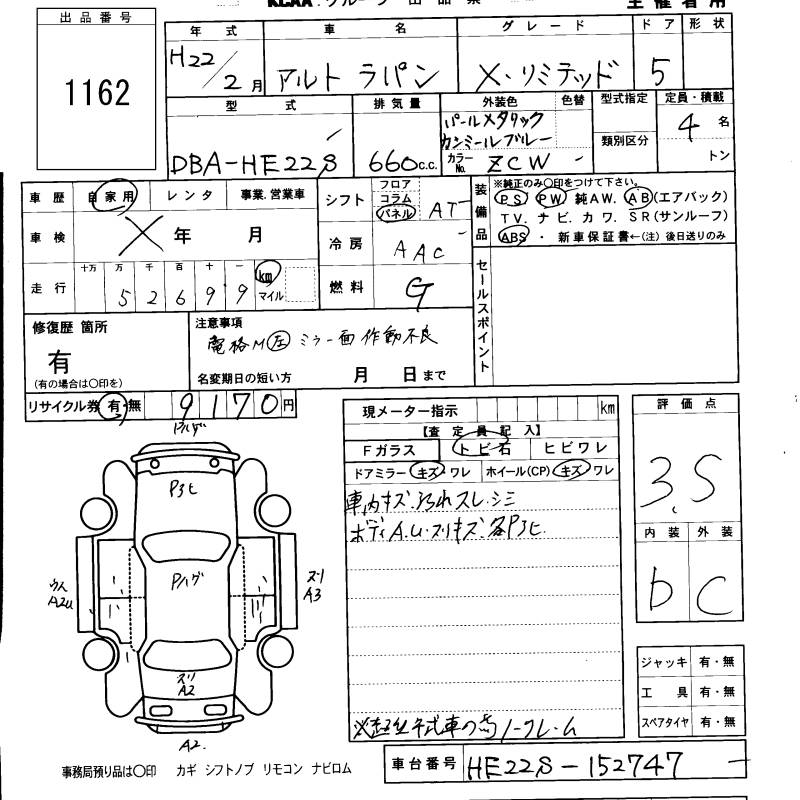 KCAA グループ 出品票
主催者用
出品番号
1162
年式 車名 グレード ドア 形状
H22/2月 アルト ラパン X・リミテッド 5
型式 排気量 外装色 色替 型式指定 定員・積載
DBA-HE22S 660c.c. パールメタリック カシミールブルー 類別区分 4名
カラーNo. ZCW - トン
車歴 自家用 レンタ 事業.営業車
車検 X 年 月
走行 十万 万 千 百 十 一 km マイル
5 2 6 9 9
シフト フロア コラム パネル AT
冷房 AAC
燃料 G
装備品 ※純正のみ〇印をつけて下さい。
PS PW 純AW. AB(エアバック)
TV. ナビ. カワ. SR(サンルーフ)
ABS ・ 新車保証書←(注) 後日送りのみ
セールスポイント
修復歴 箇所
有
(有の場合は〇印を)
注意事項
電格M左ミラー面作動不良
名変期日の短い方 月 日まで
リサイクル券 有・無 9170円
現メーター指示 km
【査定員記入】
Fガラス トビ石 ヒビワレ
ドアミラー キズ ワレ ホイール(CP) キズ ワレ
車内キズ.汚れスレ.シミ
ボディA.U.スリキズ.各P3ヒ.
評価点
3.5
内装 外装
b C
P3ヒ
Pハゲ
A2U
スリ
A3
スリ
A2
A2.
ジャッキ 有・無
工具 有・無
スペアタイヤ 有・無
ノークレーム
事務局預り品は〇印 カギ シフトノブ リモコン ナビロム
車台番号 HE22S-152747